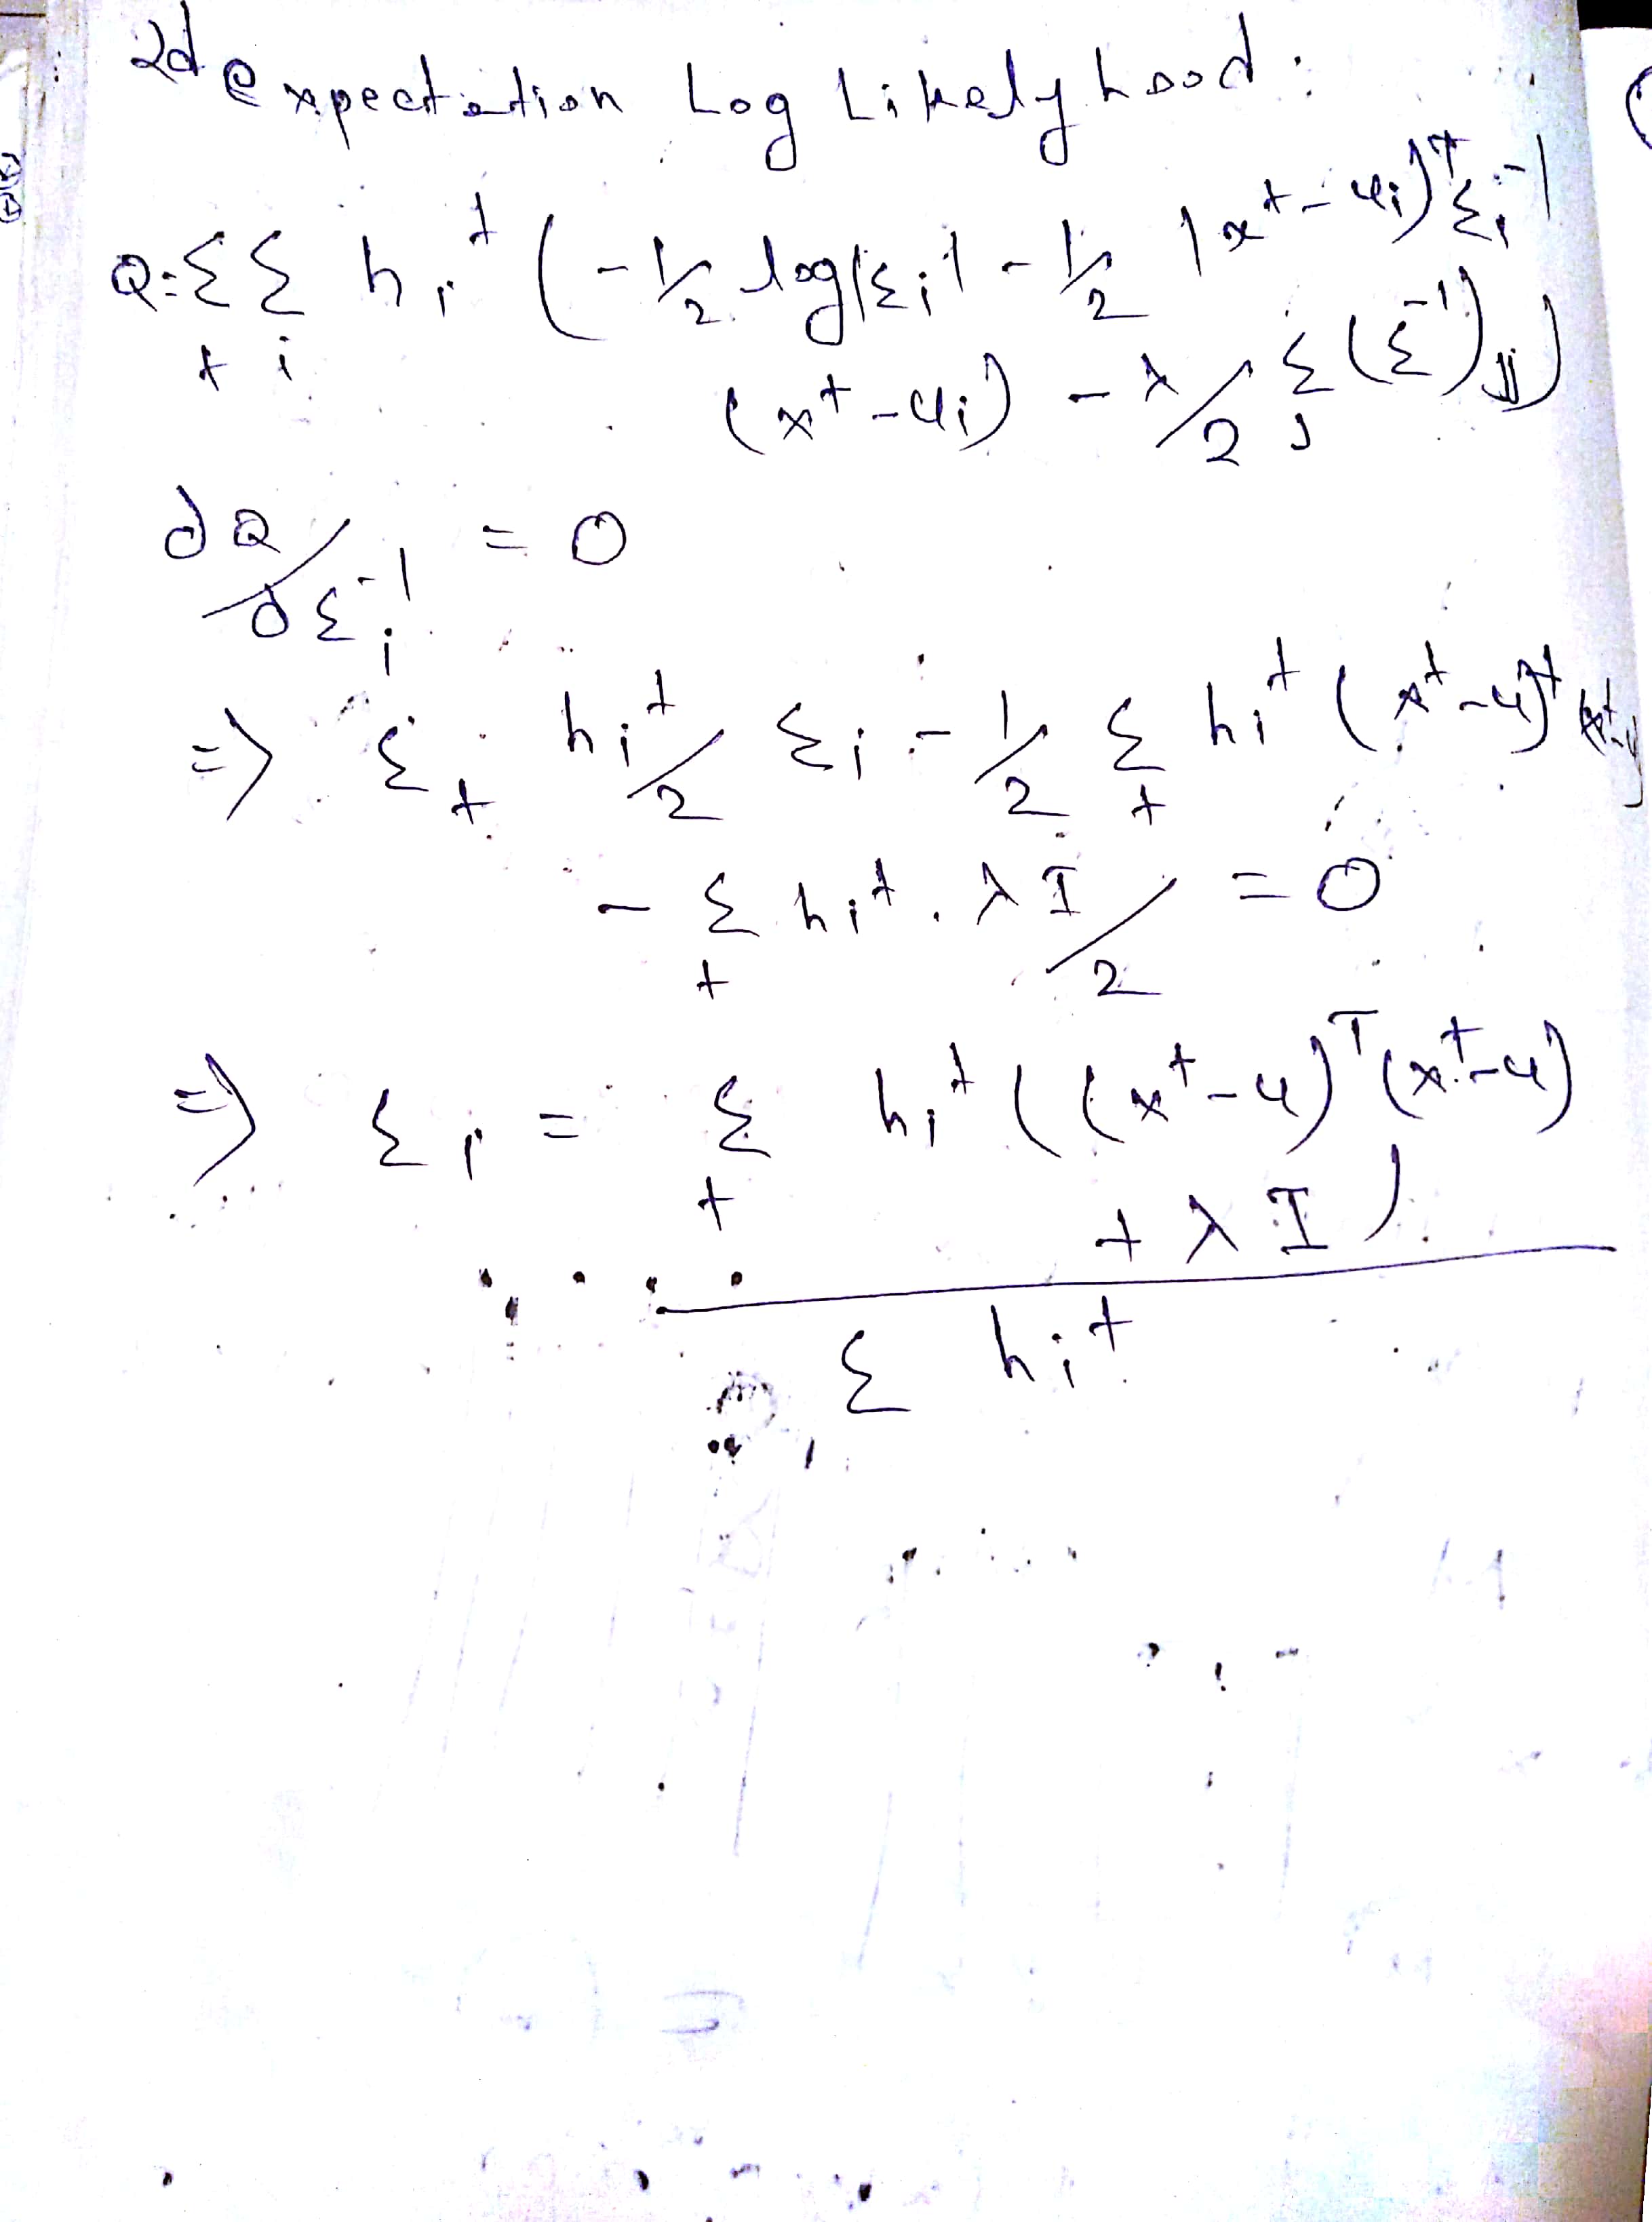 2d expectation Log Likelyhood:
Q = Σ_t Σ_i h_i^t ( -1/2 log|Σ_i| - 1/2 (x^t - μ_i)^T Σ_i^-1
(x^t - μ_i) - λ/2 Σ_j (Σ^-1)_jj )
∂Q/∂Σ_i^-1 = 0
=> Σ_t h_i^t/2 Σ_i - 1/2 Σ_t h_i^t (x^t - μ)^T
- Σ_t h_i^t . λI/2 = 0
=> Σ_i = Σ_t h_i^t ( (x^t - μ)^T (x^t - μ)
+ λI )
Σ h_i^t